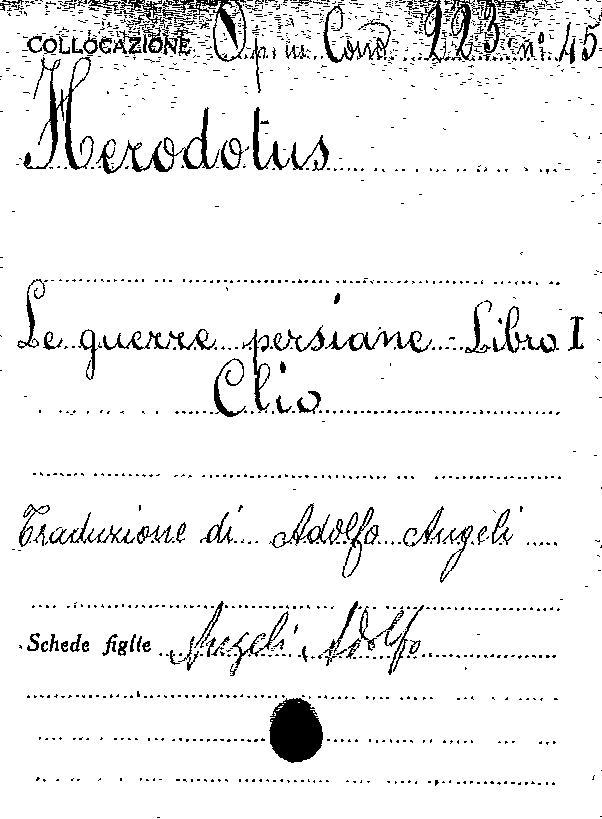 COLLOCAZIONE Op. in Cond. 223 n. 45
Herodotus
Le guerre persiane - Libro I
Clio
Traduzione di Adolfo Angeli
Schede figlie Angeli Adolfo